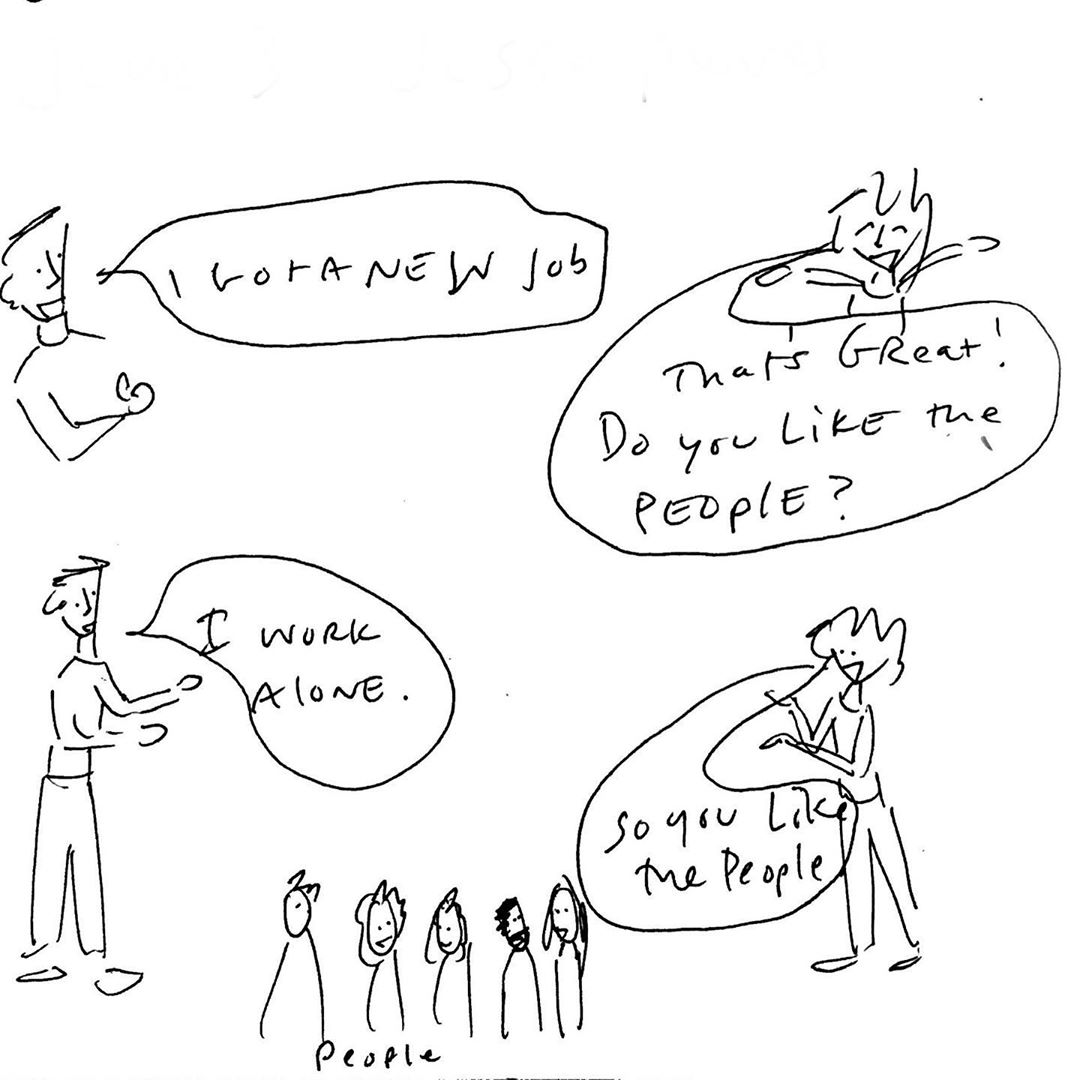 I GOT A NEW Job
That's GReat!
Do you LiKE the
PEOplE?
I WORK
AloNE.
so you Like
the People
People